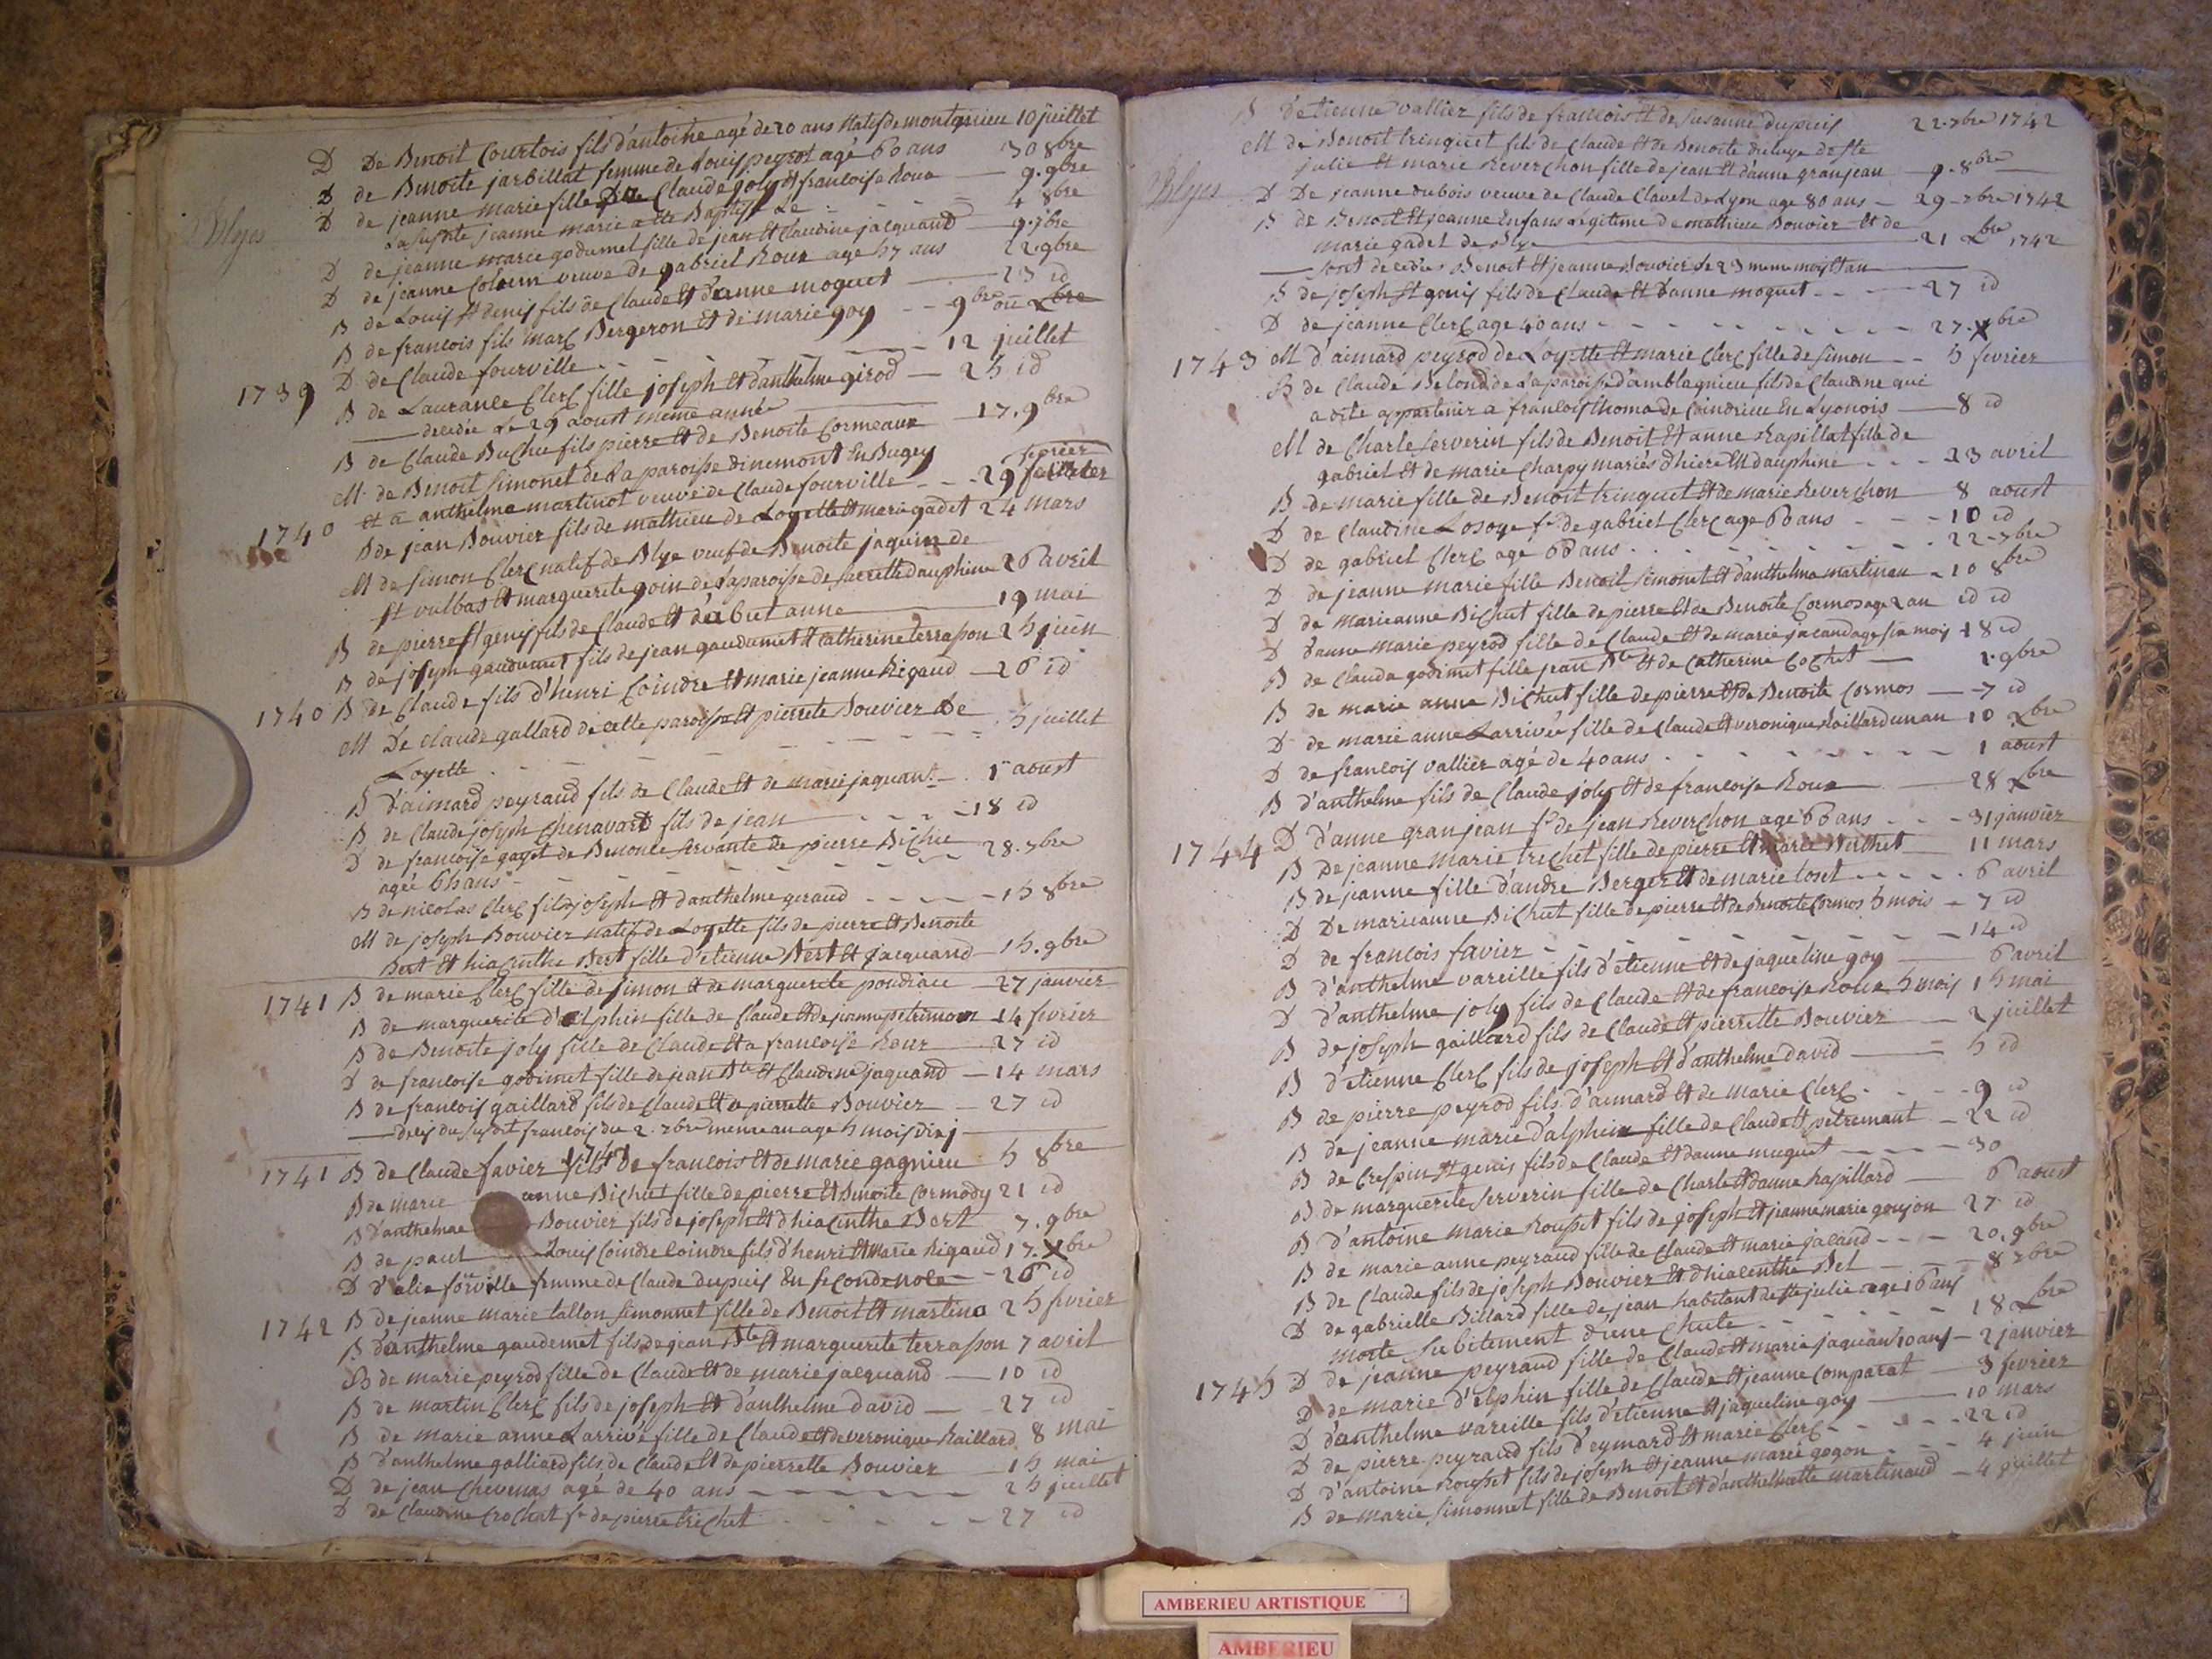 D De Benoit Courtois fils d'antoine agé de 20 ans Natif de montagnieu 10 juillet
D de Benoite jarbillat femme de Louis peyrot agé 60 ans 30 8bre
D de jeanne marie fille de Claude joly et francoise Roux 9. 9bre
La susdite jeanne marie a été Baptisée Le 4 8bre
Blyes
D de jeanne marie godumet fille de jean et Claudine jacquand 9. 7bre
D de jeanne veuve de gabriel Roux age 57 ans 22. 9bre
B de Louis st denis fils de Claude et d'anne moquet 23 id
B de francois fils marc Bergeron et de marie goy 9bre ou Xbre
1739 D de Claude fourville 12 juillet
B de Laurance Clerc fille joseph et d'anthelme girod 25 id
decedée Le 29 aoust meme année
B de Claude Buchu fils pierre et de Benoite Cormeaux 17. 9bre
M de Benoit Simonet de La paroisse dinemont En Bugey fevrier
1740 et a anthelme martinot veuve de Claude fourville 29
B de jean Bouvier fils de mathieu de Loyette et marie gadet 24 mars
M de Simon Clerc natif de Blye veuf de Benoite jaquin de
st vulbas et marguerite goin de la paroisse de Sarrette dauphine 26 avril
B de pierre st genis fils de Claude et d'abut anne 19 mai
B de joseph gaudumet fils de jean gaudumet et catherine terrasson 25 juin
1740 B de Claude fils d'henri Coindre et marie jeanne Rigaud 26 id
M De claude gallard de cette paroisse et pierrete Bouvier De
Loyette 5 juillet
B d'aimard peyraud fils de Claude et de marie jaquant 1er aoust
B de Claude joseph Chenavard fils de jean 18 id
D de francoise gayet de Benonce servante de pierre Bichu
agée 65 ans 28. 7bre
B de nicolas Clerc fils joseph et danthelme geraud 15 8bre
M de joseph Bouvier natif de Loyette fils de pierre et Benoite
Bert et hiacinthe Bert fille d'etienne Bert et jacquand 15. 9bre
1741 B de marie Clerc fille de Simon et de marguerite 27 janvier
B de marguerite d'alphin fille de Claude et de jeanne petrimon 14 fevrier
B de Benoite joly fille de Claude et a francoise Roux 27 id
D de francoise godimet fille de jean Bte et Claudine jaquand 14 mars
B de francois gaillard fils de Claude et a pierrette Bouvier 27 id
deces du susdit francois du 2. 7bre meme an age 5 mois
1741 B de Claude favier fils de francois et de marie gagnieu 5 8bre
B de marie anne Bichut fille de pierre et Benoite Cormody 21 id
B d'anthelme Bouvier fils de joseph et d'hiacinthe Bert 7. 9bre
B de paul Louis Coindre Coindre fils d'henri et Marie Rigaud 17. Xbre
D d'alix fourville femme de Claude dupuis En seconde noce 26 id
1742 B de jeanne marie tallon Simonnet fille de Benoit et martina 25 fevrier
B d'anthelme gaudemet fils de jean Bte et marguerite terrasson 7 avril
B de marie peyrod fille de Claude et de marie jacquand 10 id
B de martin Clerc fils de joseph et d'anthelme david 27 id
B de marie anne Larrivé fille de Claude et de veronique Raillard 8 mai
B d'anthelme galliard fils de Claude et de pierrette Bouvier 15 mai
D de jean Chevenas agé de 40 ans 25 juillet
D de Claudine Crochat fe de pierre trichet 27 id
B d'etienne vallier fils de francois et de Susanne dupuis 22. 7bre 1742
M de Benoit trinquet fils de Claude et de Benoite de ste
julie et marie Reverchon fille de jean et d'anne granjean 9. 8bre
Blyes D De jeanne dubois veuve de Claude Clavet de Lyon age 80 ans 29 7bre 1742
B de Benoit et jeanne Enfans Legitime de mathieu Bouvier et de
marie gadet de Blye 21 Xbre 1742
sont decedés Benoit et jeanne Bouvier Le 23 meme mois et an
B de joseph st genis fils de Claude et d'anne moquet 27 id
D de jeanne Clerc age 40 ans 27. Xbre
1743 M d'aimard peyrod de Loyette et marie Clerc fille de Simon 5 fevrier
B de Claude Belond de La paroisse d'amblagnieu fils de Claudine qui
a dite appartenir a francois thoma de Coindrieu En Lyonois 8 id
M de Charle Serverin fils de Benoit et anne Rapillat fille de
gabriel et de marie Charpy mariés d'hiere En dauphiné 23 avril
B de marie fille de Benoit trinquet et de marie Reverchon 8 aoust
D de Claudine Losoye fe de gabriel Clerc age 60 ans 10 id
D de gabriel Clerc age 60 ans 22 7bre
D de jeanne marie fille Benoit Simonet et d'anthelma martinau 10 8bre
D de marieanne Bichut fille de pierre et de Benoite Cormos age 2 an id id
D d'anne marie peyrod fille de Claude et de marie jacand age six mois 18 id
B de Claude godimet fille jean Bte et de Catherine Cochet 1. 9bre
B de marie anne Bichut fille de pierre et de Benoite Cormos 7 id
D de marie anne Larrivée fille de Claude et veronique Raillard un an 10 Xbre
D de francois vallier agé de 40 ans 1 aoust
B d'anthelme fils de Claude joly et de francoise Roux 28 Xbre
1744 D d'anne granjean fe de jean Reverchon age 66 ans 31 janvier
B De jeanne Marie trichet fille de pierre et marie Berthet 11 mars
B de jeanne fille d'andre Berger et de marie toset 6 avril
D De marieanne Bichut fille de pierre et de Benoite Cormos 5 mois 7 id
D de francois favier 14 id
B d'anthelme vareille fils d'etienne et de jaqueline goy 6 avril
D d'anthelme joly fils de Claude et de francoise Roux 5 mois 15 mai
B de joseph gaillard fils de Claude et pierrette Bouvier 2 juillet
B d'etienne Clerc fils de joseph et d'anthelme david 5 id
B de pierre peyrod fils d'aimard et de Marie Clerc 9 id
B de jeanne marie d'alphin fille de Claude et petremant 22 id
B de Crespin st genis fils de Claude et danne muguet 30
B de marguerite Serverin fille de Charle et d'anne Rapillard 6 aoust
B d'antoine marie Rousset fils de joseph et jeanne marie goujon 27 id
B de marie anne peyraud fille de Claude et marie jacand 20. 9bre
B de Claude fils de joseph Bouvier et d'hiacenthe Bet 8 7bre
D de gabrielle Billard fille de jean habitant de ste julie age 16 ans
morte Subitement d'une Chute 18 Xbre
1745 D de jeanne peyraud fille de Claude et marie jaquan 10 ans 2 janvier
D de marie d'elphin fille de Claude et jeanne Comparat 3 fevrier
D d'anthelme vareille fils d'etienne et jaqueline goy 10 mars
D de pierre peyraud fils d'eymard et marie Clerc 22 id
D d'antoine Rousset fils de joseph et jeanne marie gogon 4 juin
B de marie Simonnet fille de Benoit et d'anthelmette martinaud 4 juillet
AMBERIEU ARTISTIQUE
AMBERIEU